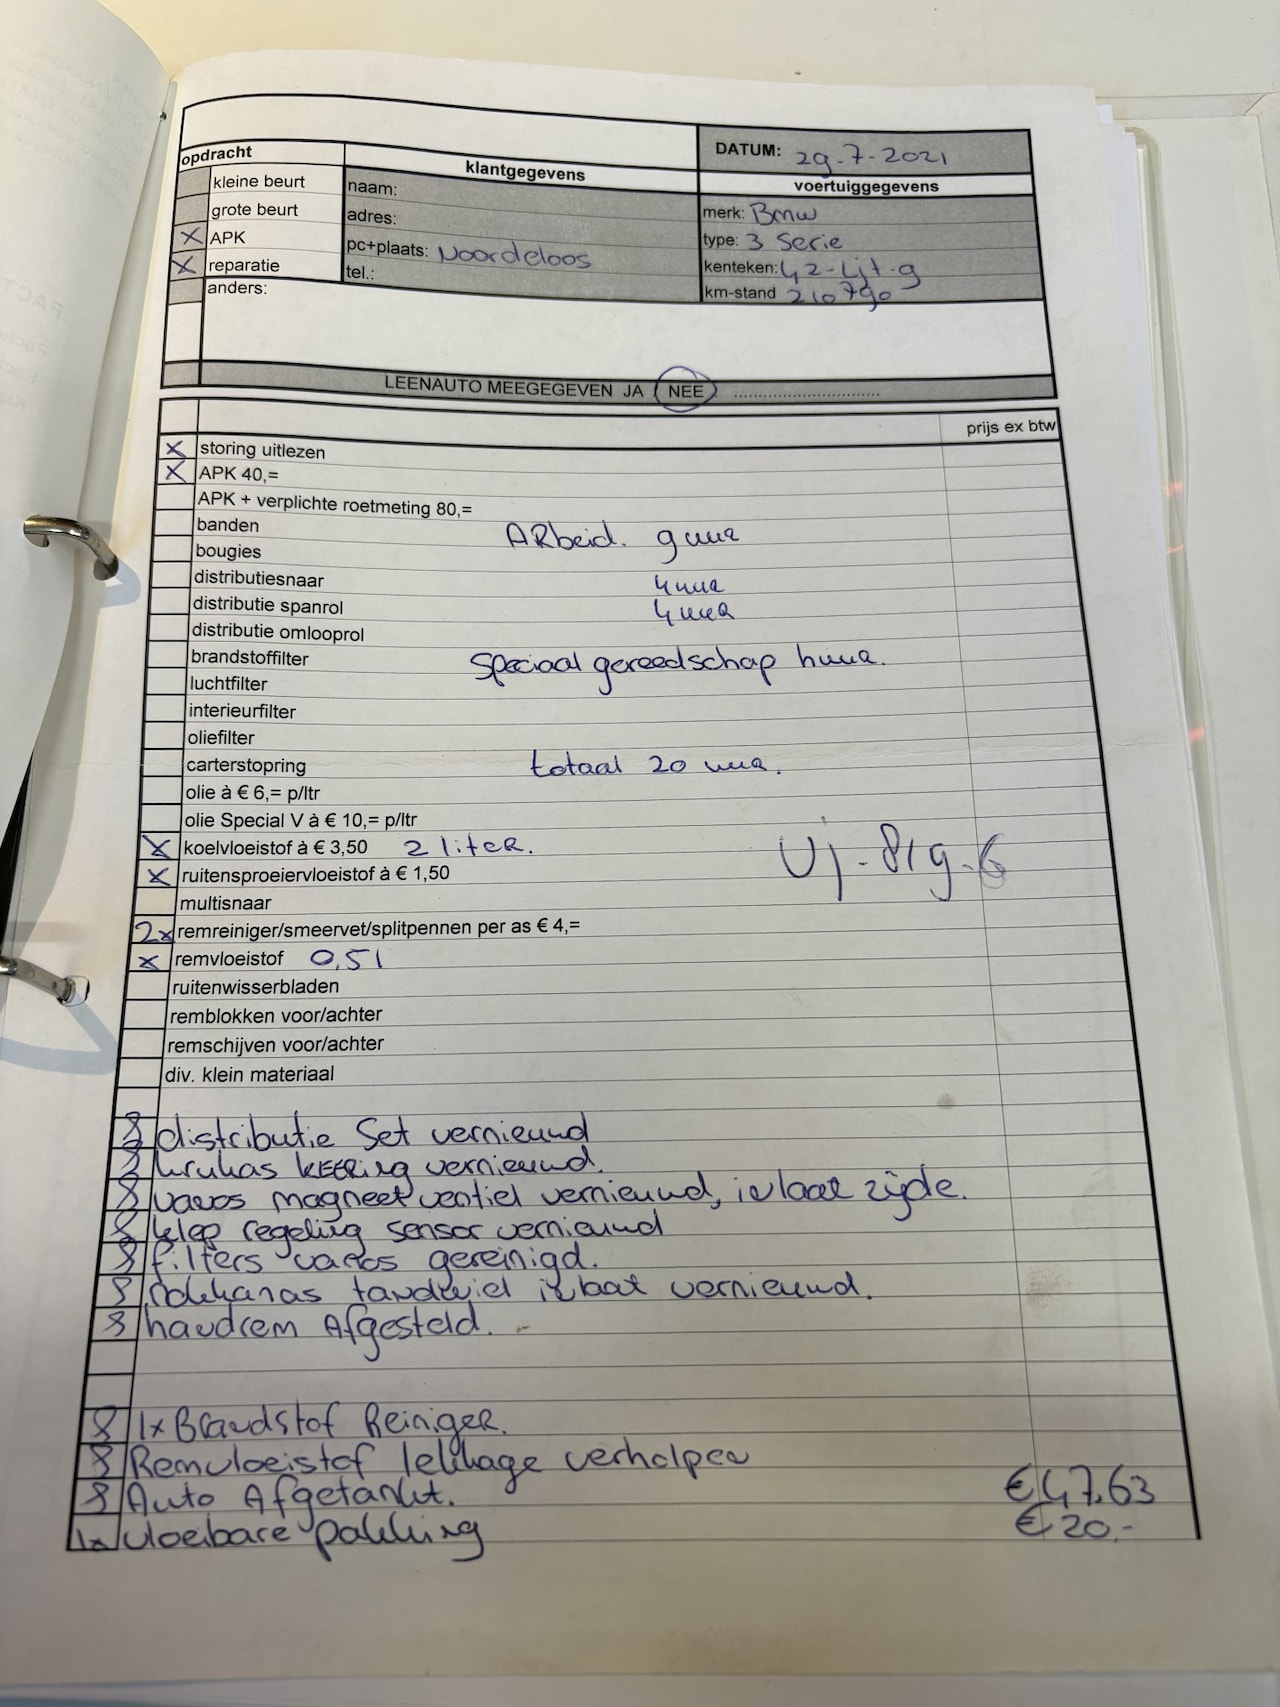 opdracht
klantgegevens
DATUM: 29-7-2021
kleine beurt
naam:
voertuiggegevens
grote beurt
adres:
merk: Bmw
X APK
pc+plaats: Noordeloos
type: 3 Serie
X reparatie
tel.:
kenteken: 42-LJT-9
anders:
km-stand 210790
LEENAUTO MEEGEGEVEN JA NEE ................................
prijs ex btw
X storing uitlezen
X APK 40,=
APK + verplichte roetmeting 80,=
banden ARbeid. 9 uur
bougies
distributiesnaar 4 uur
distributie spanrol 4 uur
distributie omlooprol
brandstoffilter Speciaal gereedschap huur.
luchtfilter
interieurfilter
oliefilter
carterstopring totaal 20 uur.
olie à € 6,= p/ltr
olie Special V à € 10,= p/ltr
X koelvloeistof à € 3,50 2 liter.
X ruitensproeiervloeistof à € 1,50
multisnaar
2x remreiniger/smeervet/splitpennen per as € 4,=
x remvloeistof 0,5l
ruitenwisserbladen
remblokken voor/achter
remschijven voor/achter
div. klein materiaal
distributie Set vernieuwd
krukas KEERing vernieuwd.
vanos magneet ventiel vernieuwd, inlaat zijde.
klep regeling sensor vernieuwd
filters vanos gereinigd.
Nokkenas tandwiel inlaat vernieuwd.
handrem Afgesteld.
1x Brandstof Reiniger.
Remvloeistof lekkage verholpen
Auto Afgetankt. € 47,63
1x vloeibare pakking € 20,-